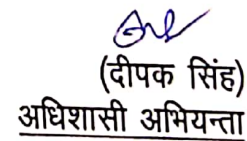 (दीपक सिंह)
अधिशासी अभियन्ता